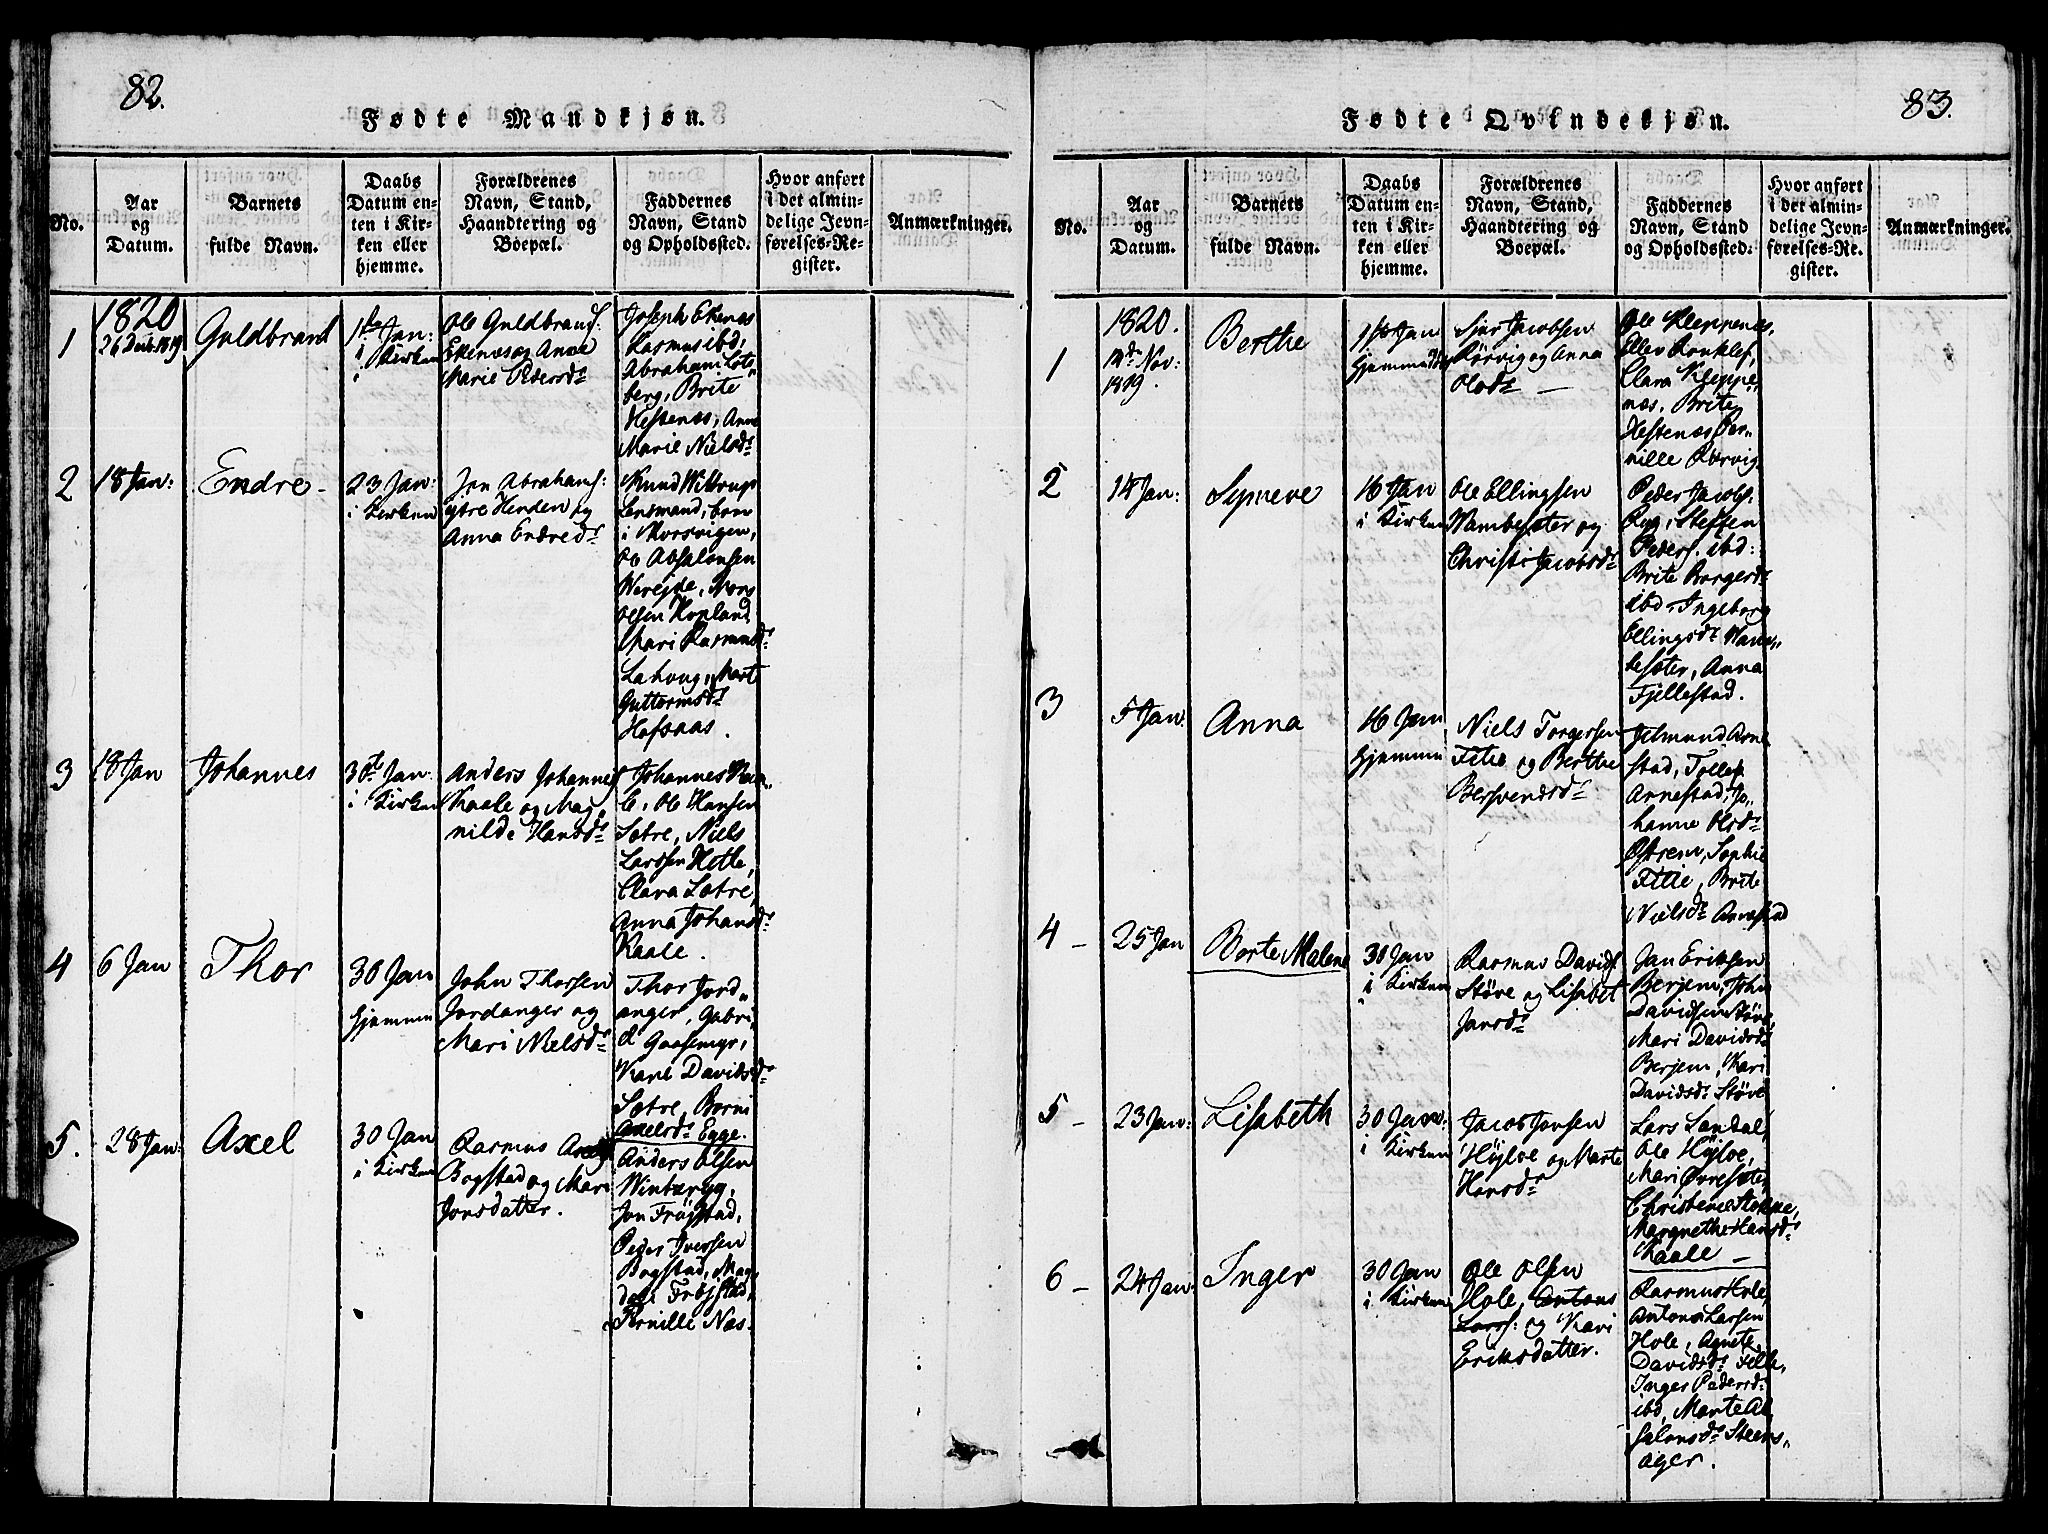 82.
Fødte Mandkjøn.
No.
Aar
og
Datum.
Barnets
fulde Navn.
Daabs
Datum en-
ten i Kir-
ken eller
hjemme.
Forældrenes
Navn, Stand,
Haandtering og
Boepæl.
Faddernes
Navn, Stand
og Opholdssted.
Hvor anført
i det almin-
delige Jevn-
førelses-Re-
gister.
Anmærkninger.
1
1820
26 Decb. 1819
Guldbrand
1ste Jan:
i Kirken
Ole Guldbrands:
Ekenæs og Anne
Marie Pedersd.
Joseph Ekenæs
Rasmus ibd,
Abraham Lots„
berg, Brite
Hestenæs, Anne
Marie Nielsd.
2
18 Jan:
Endre
23 Jan:
i Kirken
Jon Abrahams:
ytre Henden og
Anna Endred.
Knud
Lensmand,
i
Ole Absalonsen
Mons
Olsen Hopland,
Mari Rasmusd.
Marte
Guttormsd.
Hofsaas.
3
18 Jan
Johannes
30 Jan:
i Kirken
Anders Johannes
Kaale og Mag„
nilde Hansd.
Johannes Kaa„
le, Ole Hansen
Sætre, Niels
Larssen Hetle,
Clara Sætre,
Anna Johansd.
Kaale.
4
6 Jan
Thor
30 Jan
hjemme
John Thorsen
Jordanger og
Mari Nielsd.
Thor Jord„
anger, Gabri„
el Gaasemyr,
Kari Davidsd.
Sætre, Borni
Axelsd. Egge.
5.
28 Jan:
Axel
30 Jan
i Kirken
Rasmus Axels
Bogstad og Mari
Jonsdatter.
Anders Olsen
Jon Frøjstad,
Peder Iversen
Bogstad, Mag„
dele Frøjstad,
Pernille Næs.
83.
Fødte Qvindekjøn.
No.
Aar
og
Datum.
Barnets
fulde Navn.
Daabs
Datum en-
ten i Kir-
ken eller
hjemme.
Forældrenes
Navn, Stand,
Haandtering og
Boepæl.
Faddernes
Navn, Stand
og Opholdssted.
Hvor anført
i det almin-
delige Jevn-
førelses-Re-
gister.
Anmærkninger.
1
1820.
Nov:
1819.
Berthe
1ste Jan
Sjur Jacobsen
Rørvig og Anna
Olsd.
Ole Kleppenæs,
Clara Kleppe„
næs, Brite
Hestenæs, Per„
nille Rørvig.
2
14 Jan:
Synneve
16 Jan
i Kirken
Ole Ellingsen
Wambesæter og
Christi Jacobsd.
Peder Jacobs.
Ryg, Steffen
Peders. ibd:
Brite Borgersd.
ibd. Ingeborg
Ellingsd. Wam„
besæter, Anna
Fjellestad.
3
5 Jan.
Anna
16 Jan
hjemme
Niels Torgersen
Fitie og Berthe
Bersvendsd.
Jetmund Arne
stad, Tollef
Arnestad, Jo„
hanne Olsd.
Østrem, Sophie
Fitie, Brite
Nielsd. Arnestad
4
25 Jan
Berte Malene
30 Jan
i Kirken
Rasmus Davids
Støve og Lisabet
Jansd.
Jan Eriksen
Berjem, John
Davidsen Støve,
Mari Davidsd.
Berjem, Kari
Davidsd. Støve
5
23 Jan:
Lisabeth
30 Jan:
i Kirken
Jacob Jonsen
Højloe og Marte
Hansd.
Lars Sandal,
Ole Højloe,
Mari Øvresæter,
Christence Stokke,
Margrethe Hansd.
Kaale
6
24 Jan:
Inger
30 Jan
i Kirken
Ole Olsen
Hole, Antons
Larss: og Kari
Eriksdatter.
Rasmus Hole,
Anton Larsen
Hole, Agnete
Davidsd.
Inger Pedersd.
ibd, Marte Ab„
salonsd. Steens„
ager.